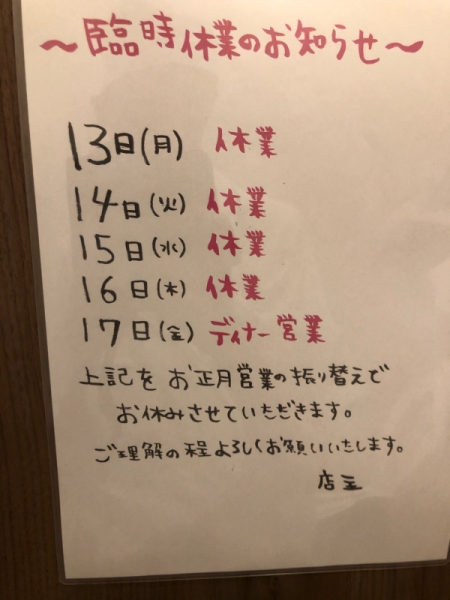 ～臨時休業のお知らせ～
13日(月) 休業
14日(火) 休業
15日(水) 休業
16日(木) 休業
17日(金) ディナー営業
上記をお正月営業の振り替えで
お休みさせていただきます。
ご理解の程よろしくお願いいたします。
店主